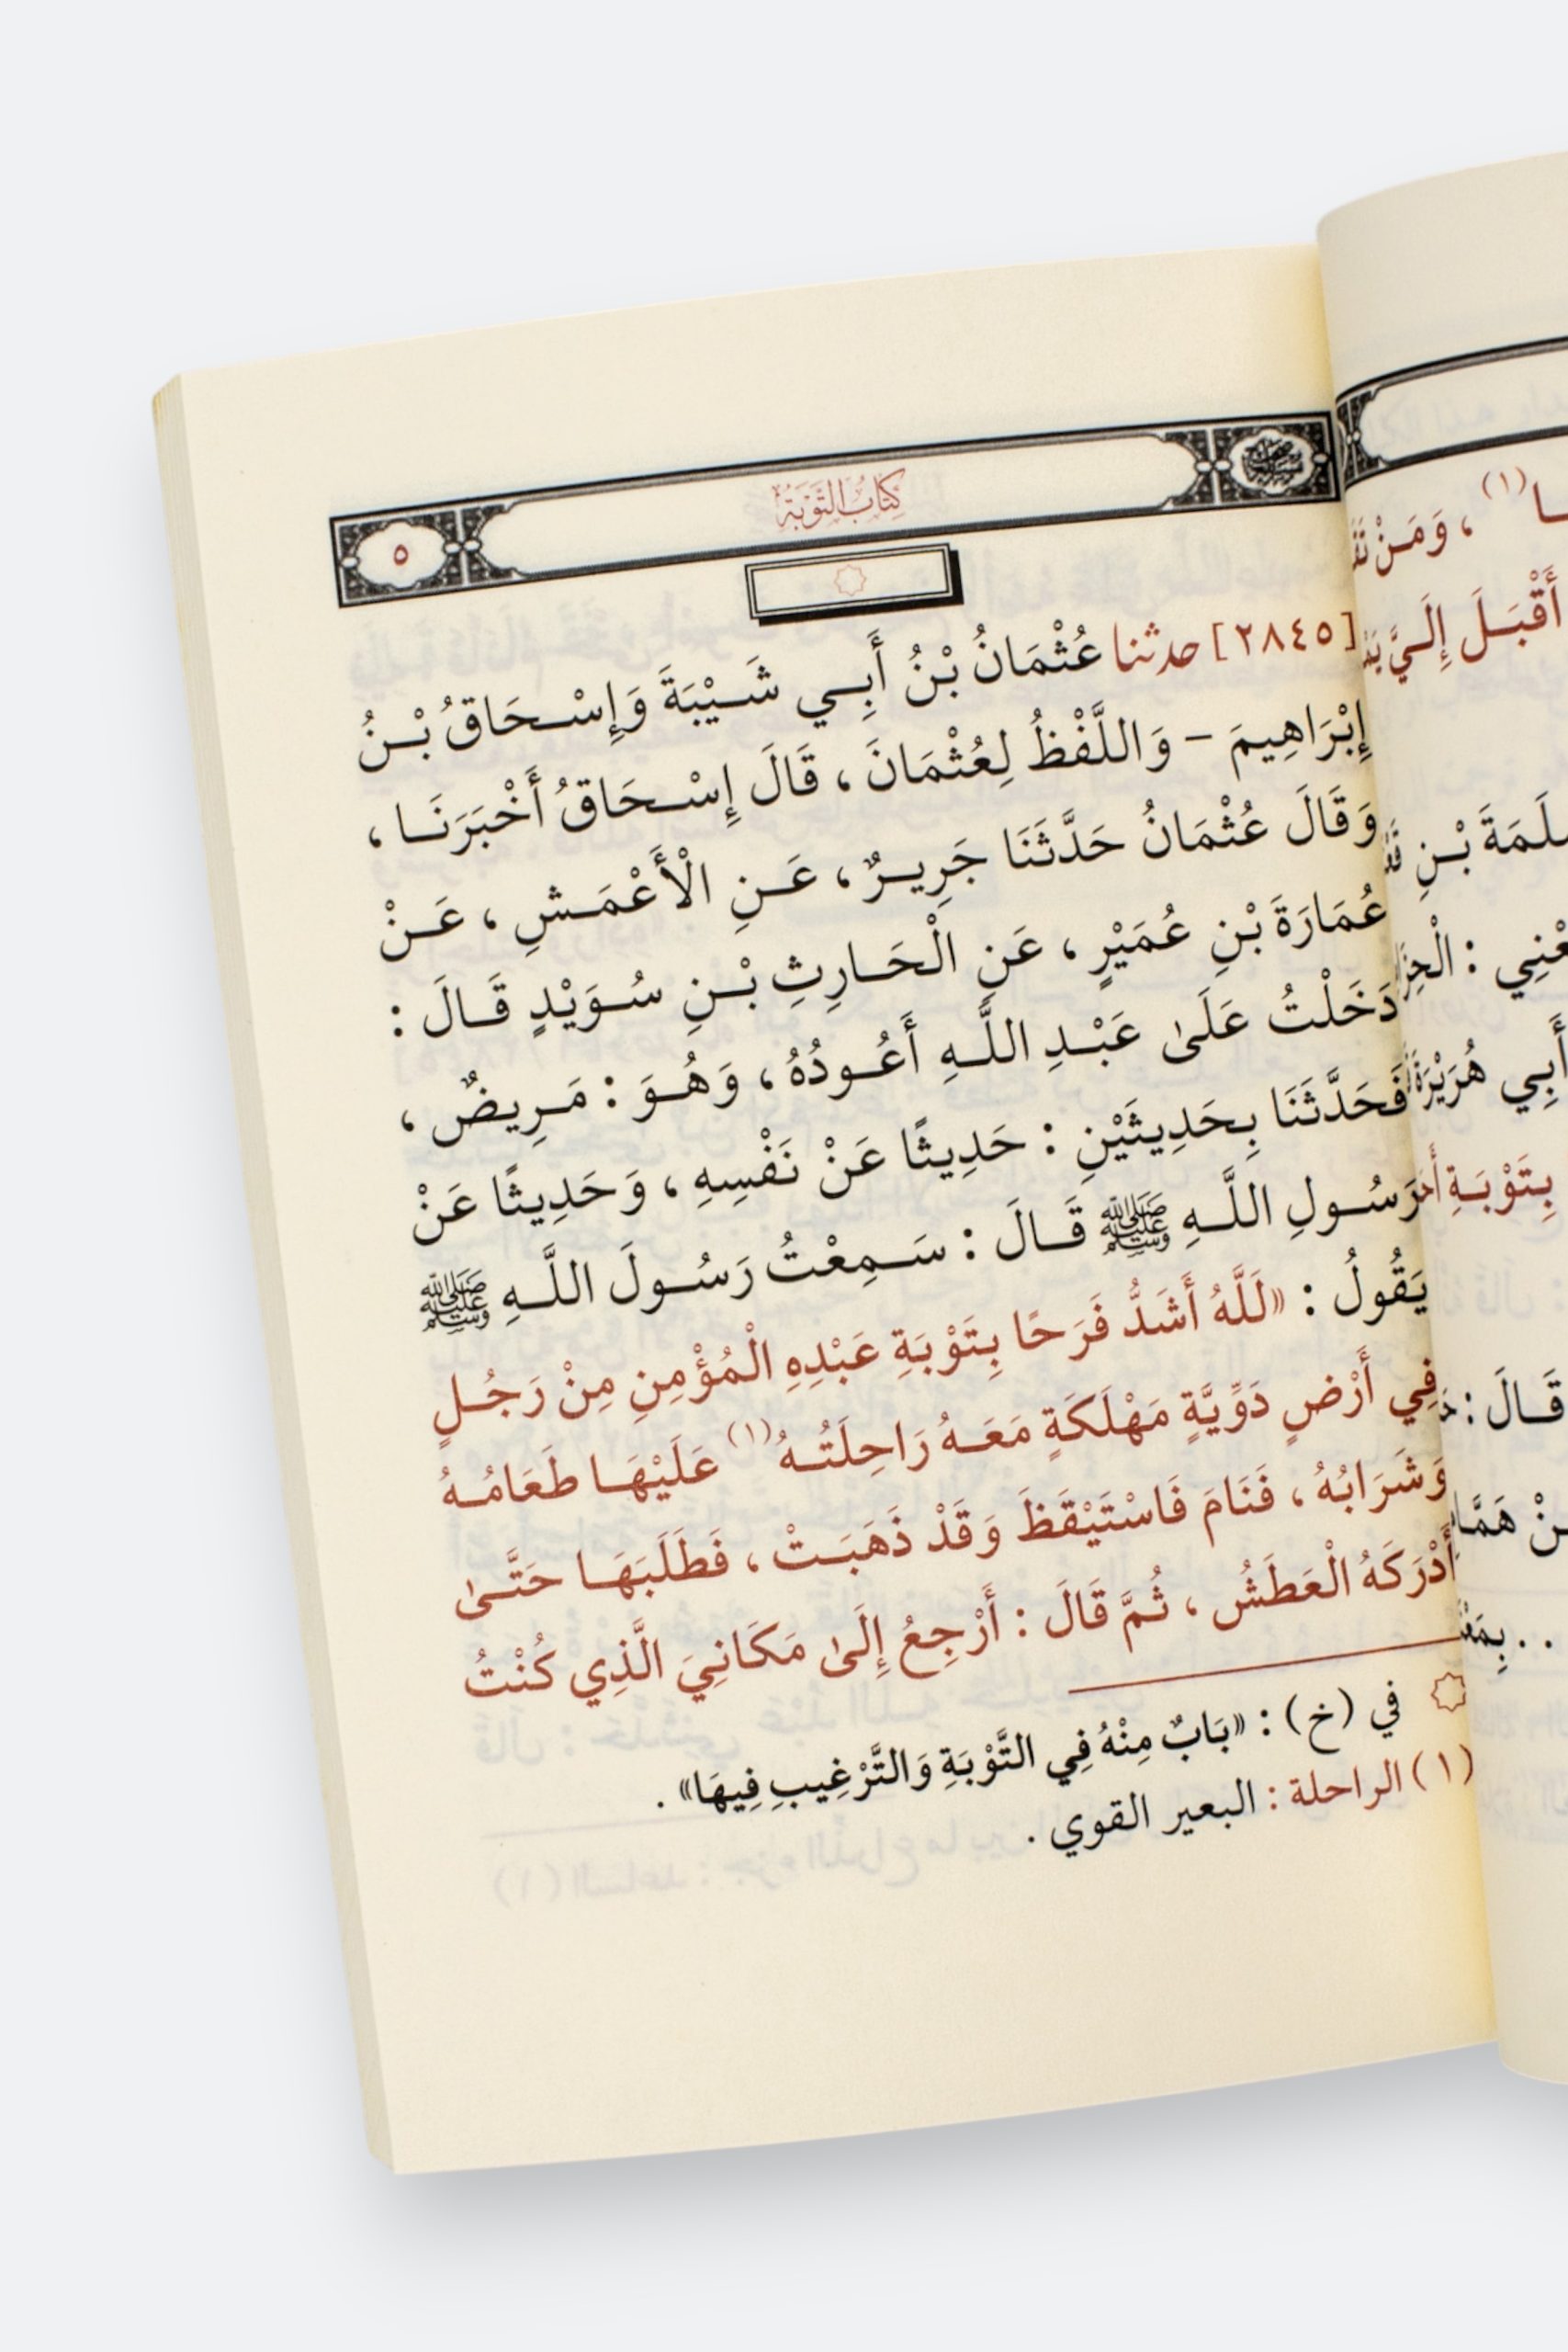 كِتَابُ التَّوْبَةِ
٥
[٢٨٤٥] حدثنا عُثْمَانُ بْنُ أَبِي شَيْبَةَ وَإِسْحَاقُ بْنُ
إِبْرَاهِيمَ - وَاللَّفْظُ لِعُثْمَانَ ، قَالَ إِسْحَاقُ أَخْبَرَنَا ،
وَقَالَ عُثْمَانُ حَدَّثَنَا جَرِيرٌ ، عَنِ الْأَعْمَشِ ، عَنْ
عُمَارَةَ بْنِ عُمَيْرٍ ، عَنِ الْحَارِثِ بْنِ سُوَيْدٍ قَالَ :
دَخَلْتُ عَلَىٰ عَبْدِ اللَّهِ أَعُودُهُ ، وَهُوَ : مَرِيضٌ ،
فَحَدَّثَنَا بِحَدِيثَيْنِ : حَدِيثًا عَنْ نَفْسِهِ ، وَحَدِيثًا عَنْ
رَسُولِ اللَّهِ ﷺ قَالَ : سَمِعْتُ رَسُولَ اللَّهِ ﷺ
يَقُولُ : «لَلَّهُ أَشَدُّ فَرَحًا بِتَوْبَةِ عَبْدِهِ الْمُؤْمِنِ مِنْ رَجُلٍ
فِي أَرْضٍ دَوِّيَّةٍ مَهْلَكَةٍ مَعَهُ رَاحِلَتُهُ (١) عَلَيْهَا طَعَامُهُ
وَشَرَابُهُ ، فَنَامَ فَاسْتَيْقَظَ وَقَدْ ذَهَبَتْ ، فَطَلَبَهَا حَتَّىٰ
أَدْرَكَهُ الْعَطَشُ ، ثُمَّ قَالَ : أَرْجِعُ إِلَىٰ مَكَانِيَ الَّذِي كُنْتُ
في (خ) : «بَابٌ مِنْهُ فِي التَّوْبَةِ وَالتَّرْغِيبِ فِيهَا» .
(١) الراحلة : البعير القوي .
(١) ، وَمَنْ
أَقْبَلَ إِلَيَّ
بْنِ
: 
أَبِي هُرَيْرَةَ
بِتَوْبَةِ
قَالَ :
هَمَّامِ